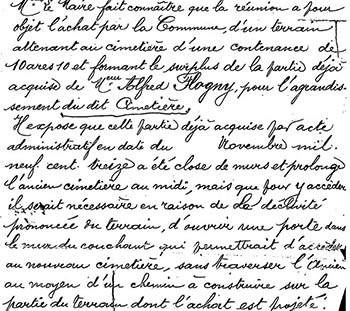 Mr le Maire fait connaître que la réunion a pour
objet l'achat par la Commune, d'un terrain
attenant au cimetière d'une contenance de
10 ares 10 et formant le surplus de la partie déjà
acquise de Mr Alfred Flogny, pour l'agrandis-
sement du dit Cimetière.
Il expose que cette partie déjà acquise par acte
administratif en date du Novembre mil
neuf cent treize a été close de murs et prolonge
l'ancien cimetière au midi, mais que pour y accéder
il serait nécessaire en raison de la déclivité
prononcée du terrain, d'ouvrir une porte dans
le mur du couchant qui permettrait d'accéder
au nouveau cimetière, sans traverser l'Ancien
au moyen d'un chemin à construire sur la
partie du terrain dont l'achat est projeté.